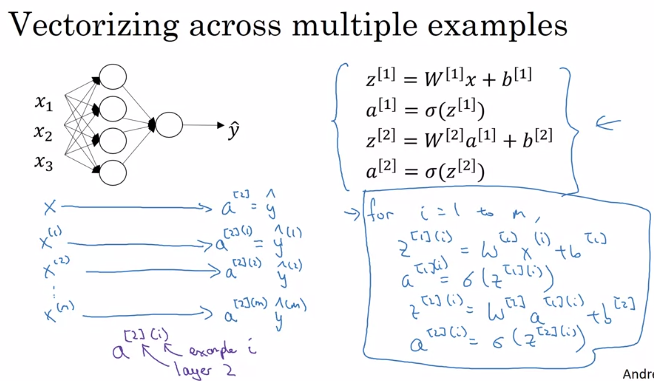 Vectorizing across multiple examples
x₁
x₂
x₃
ŷ
z^[1] = W^[1]x + b^[1]
a^[1] = σ(z^[1])
z^[2] = W^[2]a^[1] + b^[2]
a^[2] = σ(z^[2])
x → a^[2] = ŷ
x^(1) → a^[2](1) = ŷ^(1)
x^(2) → a^[2](2) ŷ^(2)
⋮
x^(m) → a^[2](m) ŷ^(m)
a^[2](i) ← example i
layer 2
→ for i = 1 to m,
z^[1](i) = W^[1] x^(i) + b^[1]
a^[1](i) = σ(z^[1](i))
z^[2](i) = W^[2] a^[1](i) + b^[2]
a^[2](i) = σ(z^[2](i))
Andre